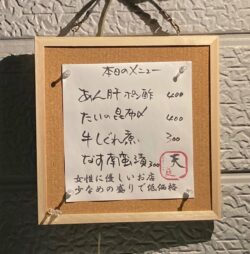 本日のメニュー
あん肝ポン酢 400
たいの昆布〆 400
牛しぐれ煮 300
なす南蛮漬 300
女性に優しいお店
少なめの盛りで低価格